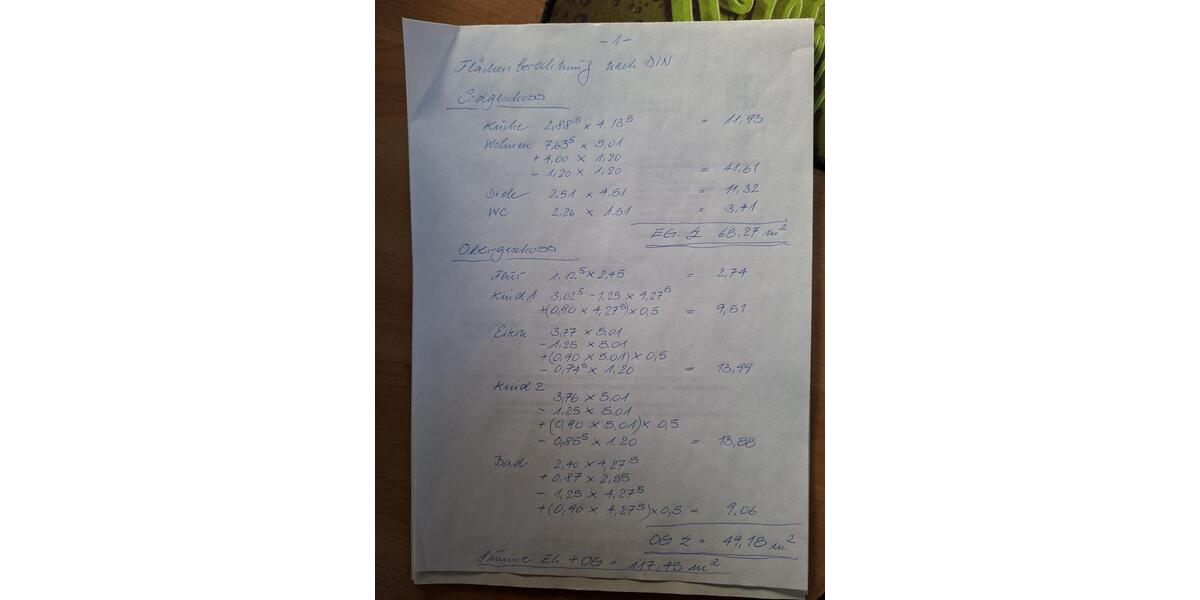 - 1 -
Flächenberechnung nach DIN
Erdgeschoss
Küche 2,88⁵ x 4,13⁵ = 11,93
Wohnen 7,63⁵ x 5,01
+ 4,00 x 1,20
- 1,20 x 1,20 = 41,61
Diele 2,51 x 4,51 = 11,32
WC 2,26 x 1.51 = 3,41
EG. Σ 68,27 m²
Obergeschoss
Flur 1,12⁵ x 2,45 = 2,74
Kind 1 3,02⁵ - 1,25 x 4,27⁵
+(0,90 x 4,27⁵) x 0,5 = 9,51
Eltern 3,77 x 5.01
- 1.25 x 5.01
+(0,90 x 5.01) x 0,5
- 0,74⁵ x 1.20 = 13,99
Kind 2
3,76 x 5,01
- 1.25 x 5.01
+(0,90 x 5,01) x 0,5
- 0,85⁵ x 1.20 = 13,88
Bad 2,40 x 4,27⁵
+ 0,87 x 2,55
- 1,25 x 4,27⁵
+(0,90 x 4,27⁵) x 0,5 = 9,06
OG Σ = 49,18 m²
Summe EG + OG = 117,45 m²